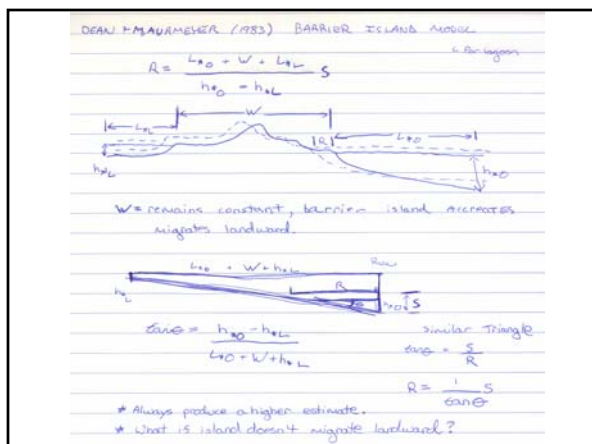 DEAN + MAURMEYER (1983) BARRIER ISLAND MODEL
L for lagoon
R = (L*O + W + L*L) / (h*O - h*L) S
W
L*L
|R|
L*O
h*L
h*O
W = remains constant, barrier island ACCREATES
migrates landward.
L*O + W + h*L
R
h*L
θ
h*O
S
tanθ = (h*O - h*L) / (L*O + W + h*L)
Similar Triangle
tanθ = S / R
R = 1 / tanθ S
* Always produce a higher estimate.
* What is island doesn't migrate landward?